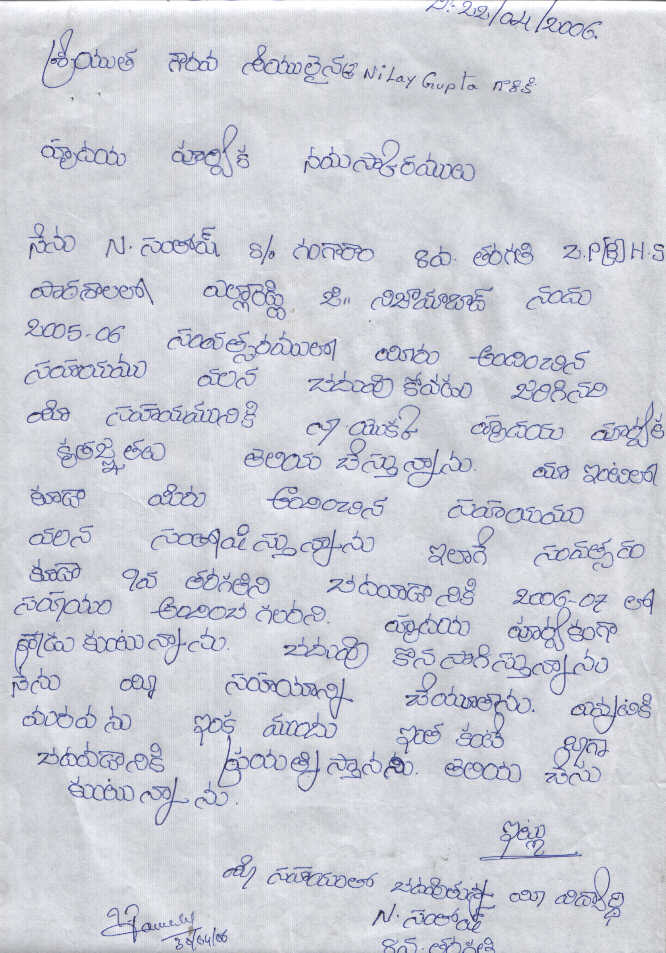 ది: 22/04/2006.
శ్రీయుత గౌరవ నీయులైన Nilay Gupta గారికి
హృదయ పూర్వక నమస్కారములు
నేను N. సంతోష్ S/o గంగారాం 8వ. తరగతి Z.P[B]H.S
పాఠశాలలో ఎల్లారెడ్డి, జి॥ నిజామాబాద్ నందు
2005-06 సంవత్సరములో మీరు అందించిన
సహాయము వలన చదువు కోవడం జరిగినది
మీ సహాయమునికి నా యొక్క హృదయ పూర్వక
కృతజ్ఞతలు తెలియ చేస్తున్నాను. మా ఇంటిలో
కూడా మీరు అందించిన సహాయము
వలన సంతోషిస్తున్నాను ఇలాగే సంవత్సరం
కూడా 9వ తరగతిని చదవడానికి 2006-07 లో
సహాయం అందించ గలరని. హృదయ పూర్వకంగా
కోరుకుంటున్నాను. చదువు కొన సాగిస్తున్నాను
నేను మీ సహాయాన్ని. ఎప్పటికి
మరవను ఇంక ముందు ఇంత కంటే బాగా
చదవడానికి ప్రయత్నిస్తానని. తెలియ చేసు
కుంటున్నాను.
ఇట్లు
మీ సహాయంతో చదువుతున్న మీ విద్యార్థి
N. సంతోష్
8వ. తరగతి